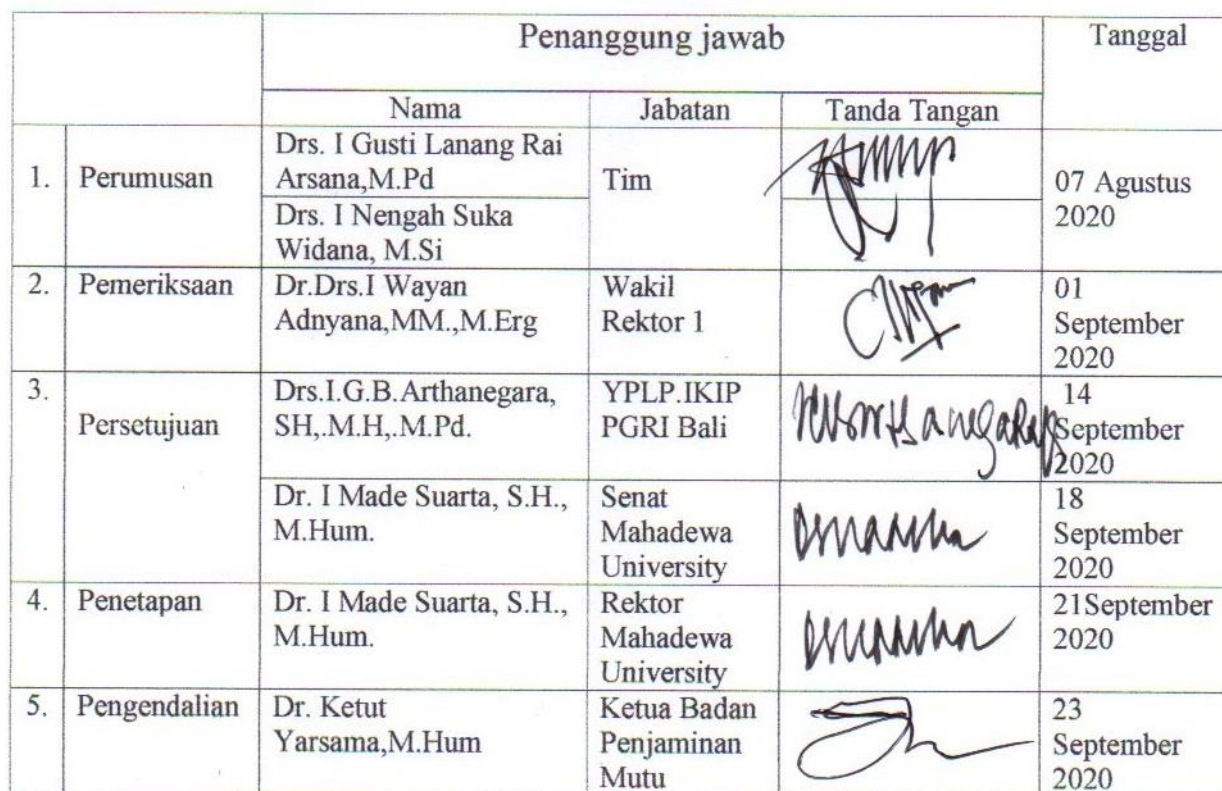 Penanggung jawab Tanggal
Nama Jabatan Tanda Tangan
1. Perumusan Drs. I Gusti Lanang Rai
Arsana,M.Pd
Tim
07 Agustus
2020
Drs. I Nengah Suka
Widana, M.Si
2. Pemeriksaan Dr.Drs.I Wayan
Adnyana,MM.,M.Erg
Wakil
Rektor 1
01
September
2020
3. Persetujuan
Drs.I.G.B.Arthanegara,
SH,.M.H,.M.Pd.
YPLP.IKIP
PGRI Bali
14
September
2020
Dr. I Made Suarta, S.H.,
M.Hum.
Senat
Mahadewa
University
18
September
2020
4. Penetapan Dr. I Made Suarta, S.H.,
M.Hum.
Rektor
Mahadewa
University
21September
2020
5. Pengendalian Dr. Ketut
Yarsama,M.Hum
Ketua Badan
Penjaminan
Mutu
23
September
2020